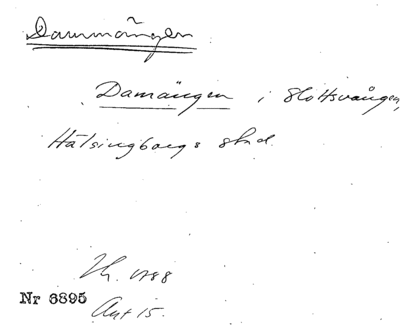 Dammängen
Damängen i Slottsvången,
Hälsingborgs stad
1788
Nr 6895
Akt 15.